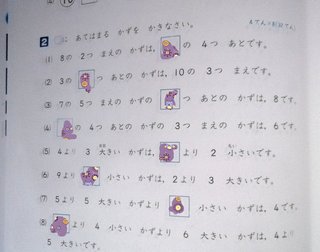 2 □に あてはまる かずを かきなさい。
(1) 8の 2つ まえの かずは、 の 4つ あとです。
(2) 3の つ あとの かずは、10の 3つ まえです。
(3) 7の 5つ まえの かずの つ あとの かずは、8です。
(4) の 4つ あとの かずの 3つ まえの かずは、6です。
(5) 4より 3 大きい かずは、 より 2 小さいです。
(6) 9より 小さい かずは、2より 3 大きいです。
(7) 5より 5 大きい かずより 小さい かずは、4です。
(8) より 4 小さい かずより 6 大きい かずは、4より
5 大きいです。